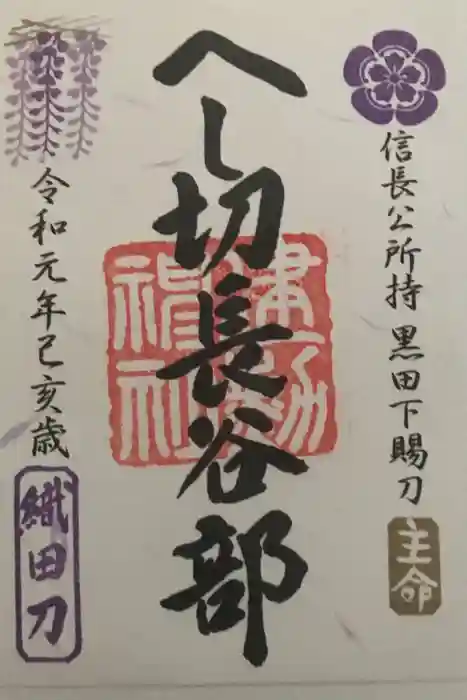 信長公所持 黒田下賜刀
主命
へし切長谷部
建勲神社
令和元年己亥歳
織田刀